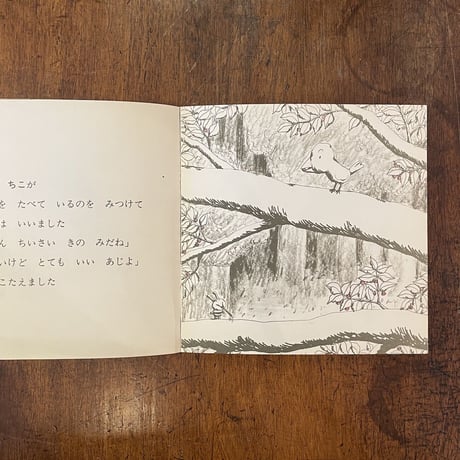 ちこが
を たべて いるのを みつけて
は いいました
ん ちいさい きの みだね」
いけど とても いい あじよ」
こたえました